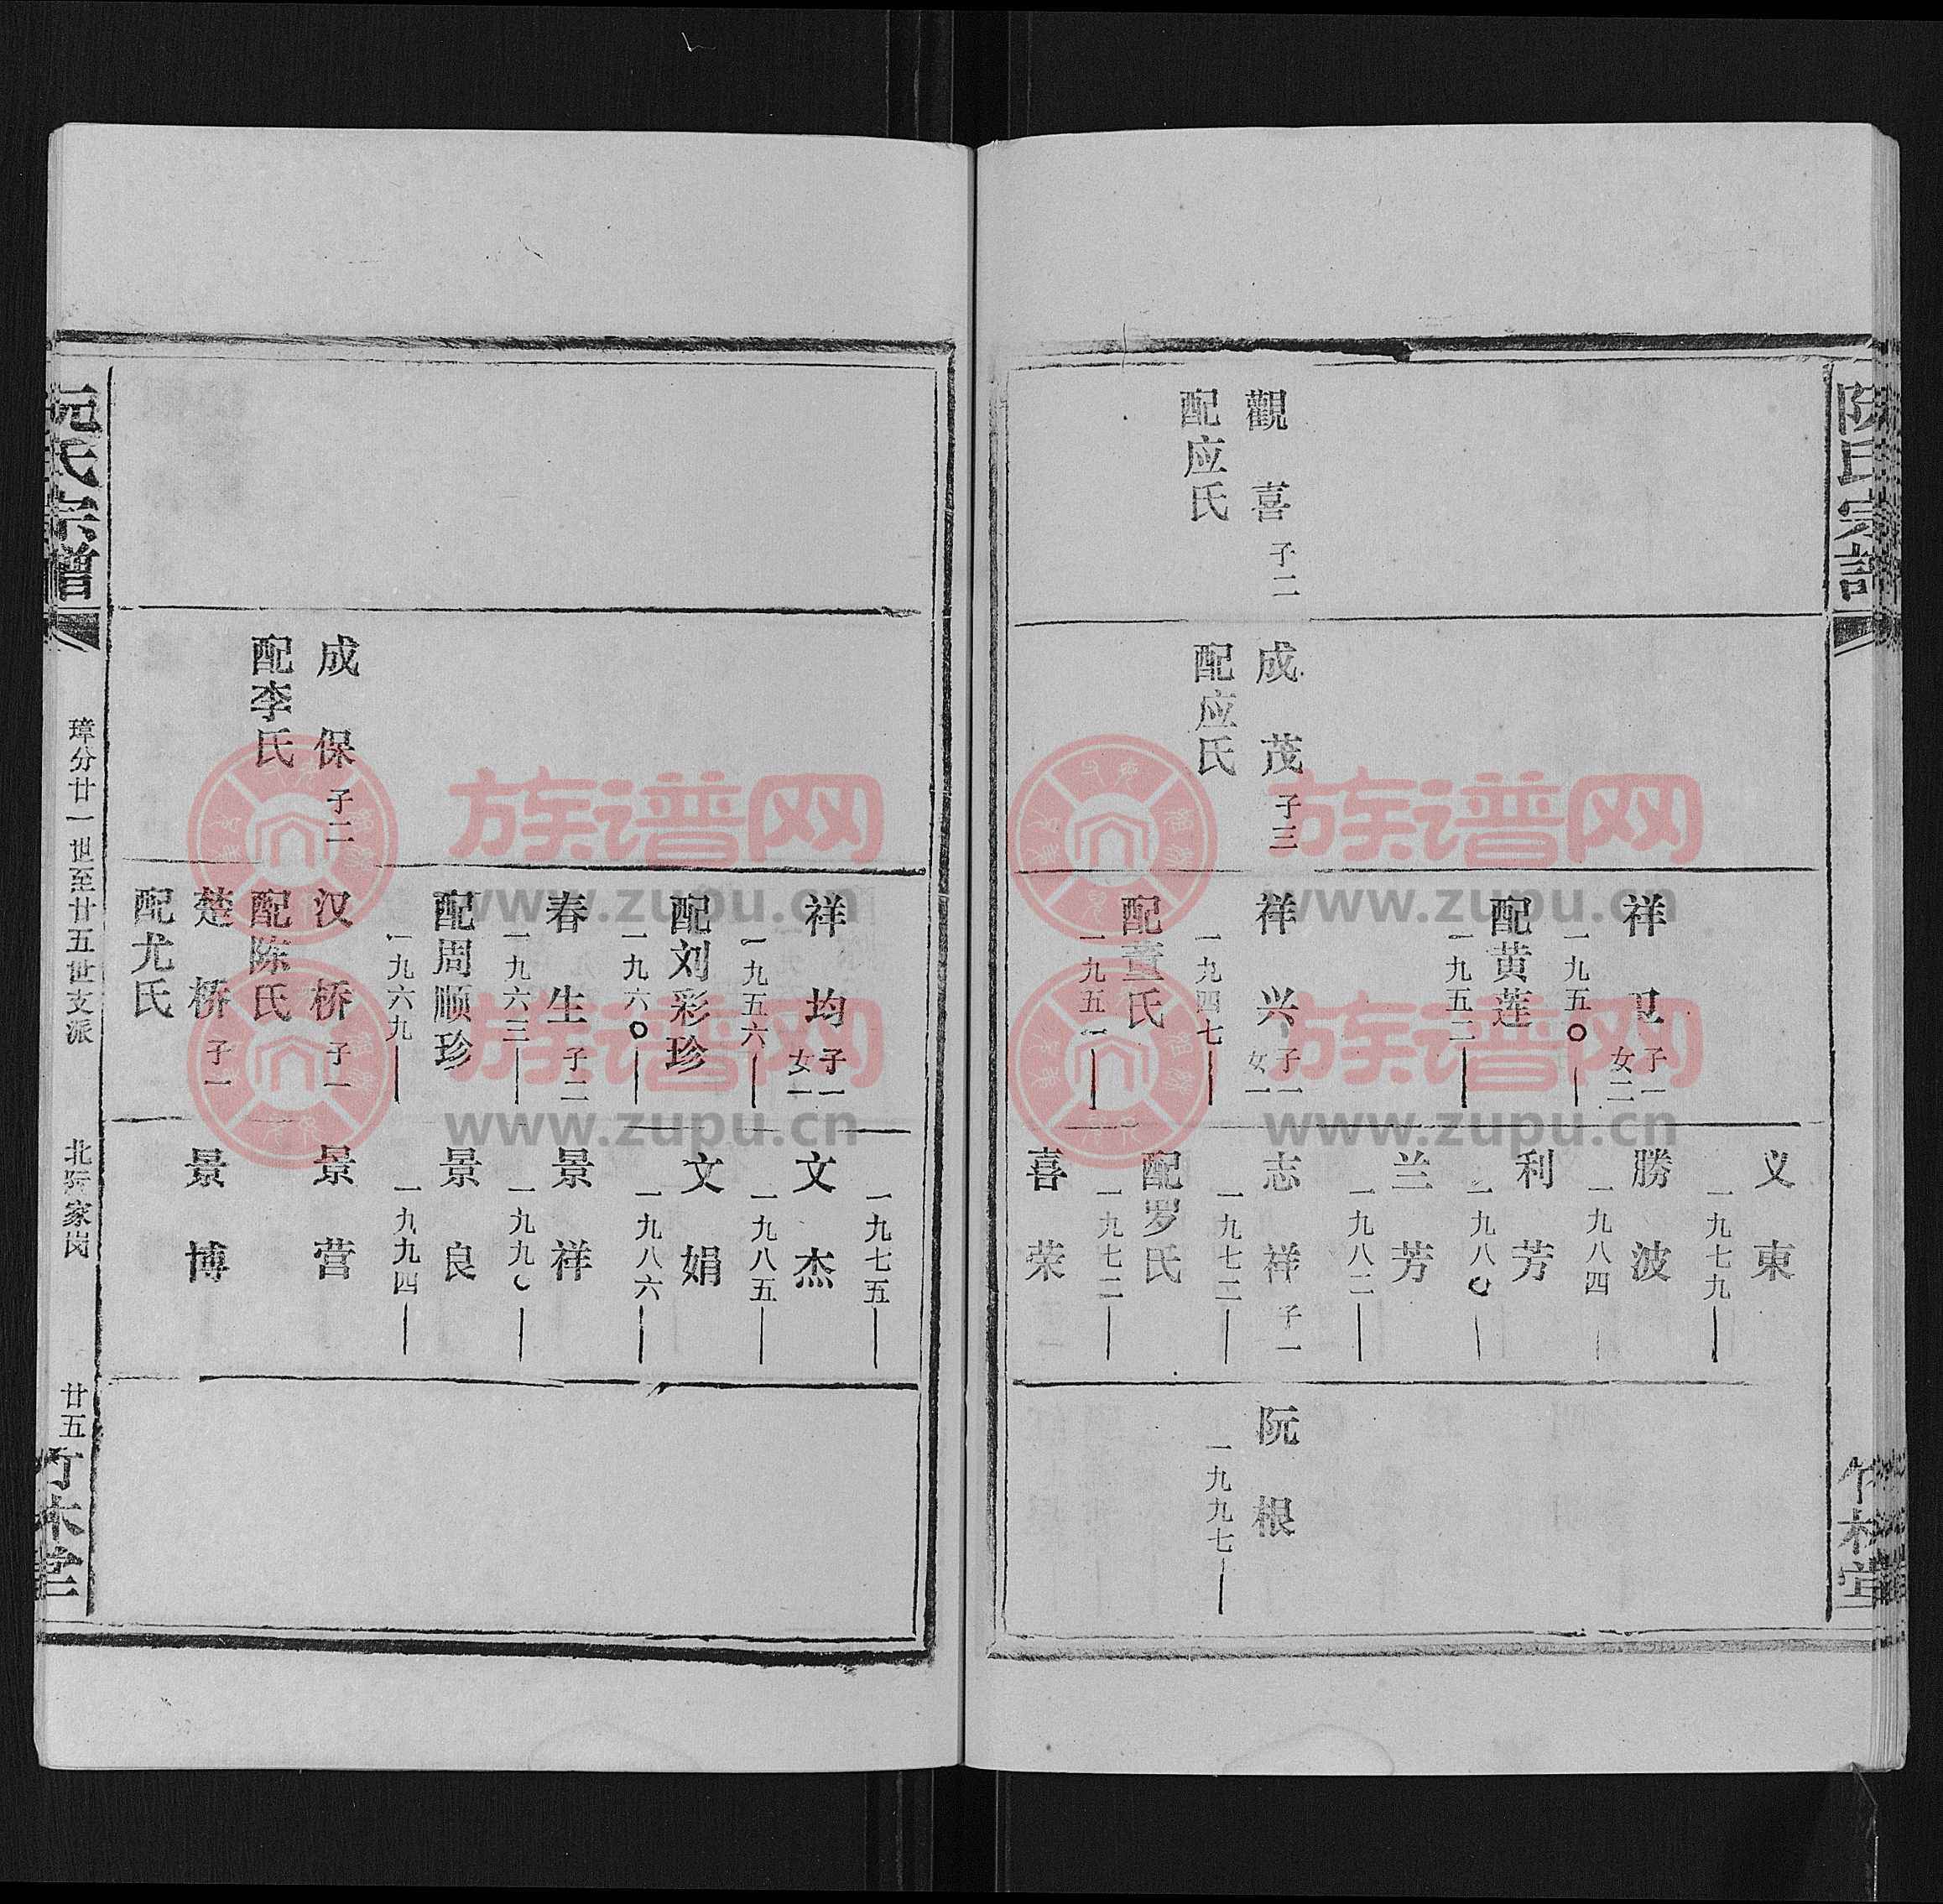 阮氏宗譜
竹林堂
觀喜 子二
配应氏
成茂 子三
配应氏
祥卫 子一 女二
一九五〇—
配黄莲
一九五二—
祥兴 子一 女一
一九四七—
配董氏
一九五一—
义東
一九七九—
勝波
一九八四—
利芳
一九八〇—
兰芳
一九八二—
志祥 子一
一九七二—
配罗氏
一九七二—
喜荣
阮根
一九九七—
成保 子二
配李氏
祥均 子一 女一
一九五六—
配刘彩珍
一九六〇—
春生 子二
一九六三—
配周顺珍
一九六九—
汉桥 子一
配陈氏
楚桥 子一
配尤氏
一九七五—
文杰
一九八五—
文娟
一九八六—
景祥
一九九〇—
景良
一九九四—
景营
景博
阮氏宗譜
璋分廿一世至廿五世支派
北阮家岗
廿五
竹林堂
族谱网
www.zupu.cn
族谱网
www.zupu.cn
族谱网
www.zupu.cn
族谱网
www.zupu.cn